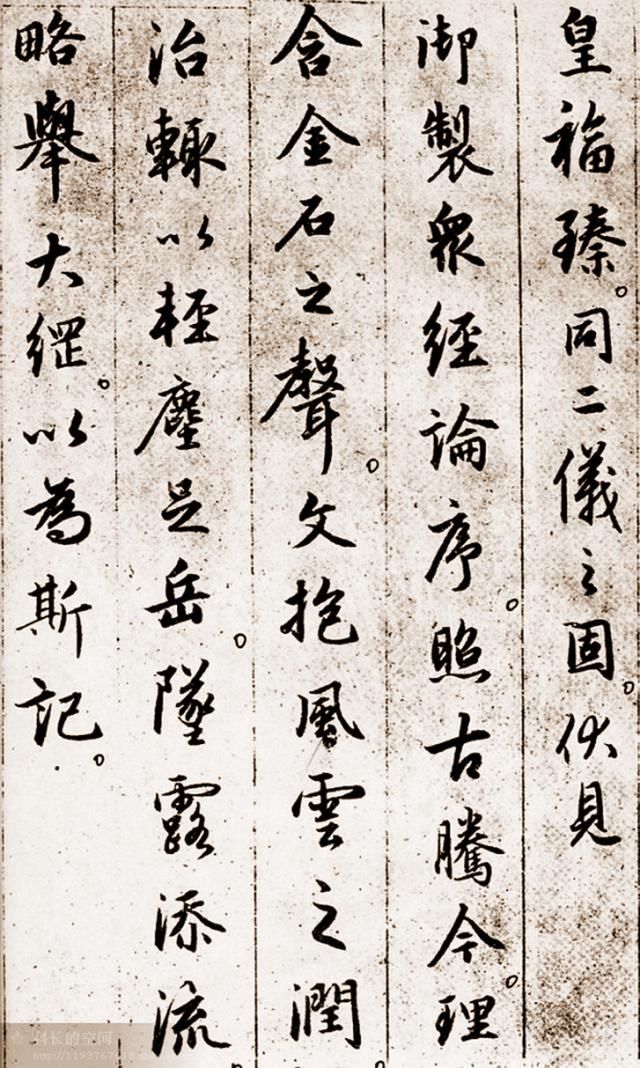 皇福臻。同二儀之固。伏見
御製衆經論序。照古騰今。理
含金石之聲。文抱風雲之潤。
治輒以輕塵足岳。墜露添流。
略舉大綱。以為斯記。
科长的空间